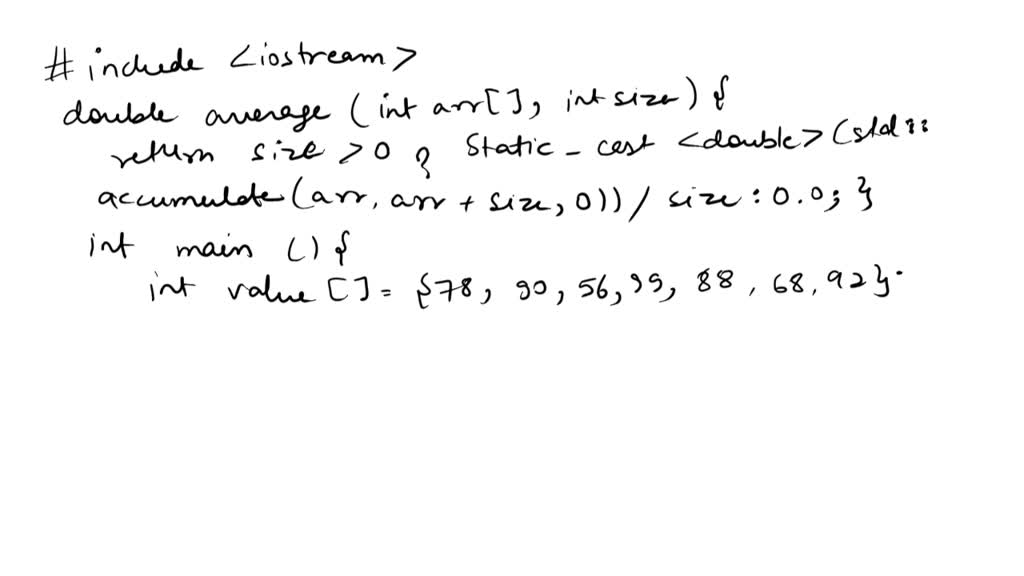 # include <iostream>
double average (int arr[], int size) {
return size > 0 ? static_cast <double> (std ::
accumulate (arr, arr + size, 0)) / size : 0.0; }
int main () {
int value [] = {78, 90, 56, 99, 88, 68, 92}.